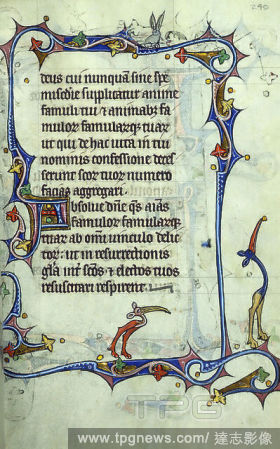 240
deus cui nunquã sine spe
misẽdie supplicatur anime
famuli tui & animabȝ fa
mulor famularqȝ tuar
ut qui de hac uita in tui
nominis confessione deces
serunt scor tuor numero
facias aggregari.
Absolue dñe qs aĩas
famulor famularqȝ
tuar ab omi uinculo delic
tor: ut in resurrectionis
glã int̾ scõs & electos tuos
resuscitati respirent.
TPG
www.tpgnews.com/ 達志影像